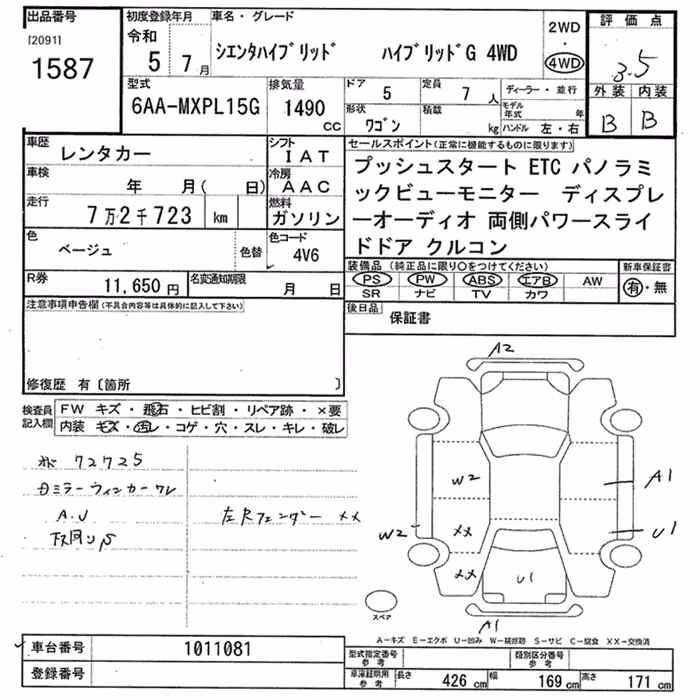 出品番号
[2091]
1587
初度登録年月
令和
5年 7月
車名・グレード
シエンタハイブリッド ハイブリッドG 4WD
2WD
・
4WD
評価点
3.5
外装 内装
B B
型式
6AA-MXPL15G
排気量
1490 CC
ドア
5
定員
7 人
形状
ワゴン
積載
kg
ディーラー・並行
モデル年式 年
ハンドル 左・右
車歴
レンタカー
シフト
IAT
車検
年 月( 日)
冷房
AAC
走行
7万2千723 km
燃料
ガソリン
色
ベージュ
色替
色コード
4V6
R券
11,650円
名変通知期限
月 日
セールスポイント(正常に機能するものに限ります)
プッシュスタート ETC パノラミ
ックビューモニター ディスプレ
ーオーディオ 両側パワースライ
ドドア クルコン
装備品 (純正品に限り○をつけてください)
PS PW ABS エアB AW
SR ナビ TV カワ
新車保証書
有・無
後日品
保証書
注意事項申告欄(不具合内容等は具体的に記入して下さい)
修復歴 有〔箇所 〕
検査員記入欄
FW キズ・飛石・ヒビ割・リペア跡・×要
内装 キズ・汚レ・コゲ・穴・スレ・キレ・破レ
72725
ミラーウィンカーワレ
A.U
左Rフェンダー XX
A2
W2
A1
W2
XX
U1
XX
U1
A1
スペア
A-キズ E-エクボ U-凹み W-補修跡 S-サビ C-腐食 XX-交換済
車台番号
1011081
登録番号
型式指定番号
参考
類別区分番号
参考
車庫証明用
参考
長さ 426 cm 幅 169 cm 高さ 171 cm